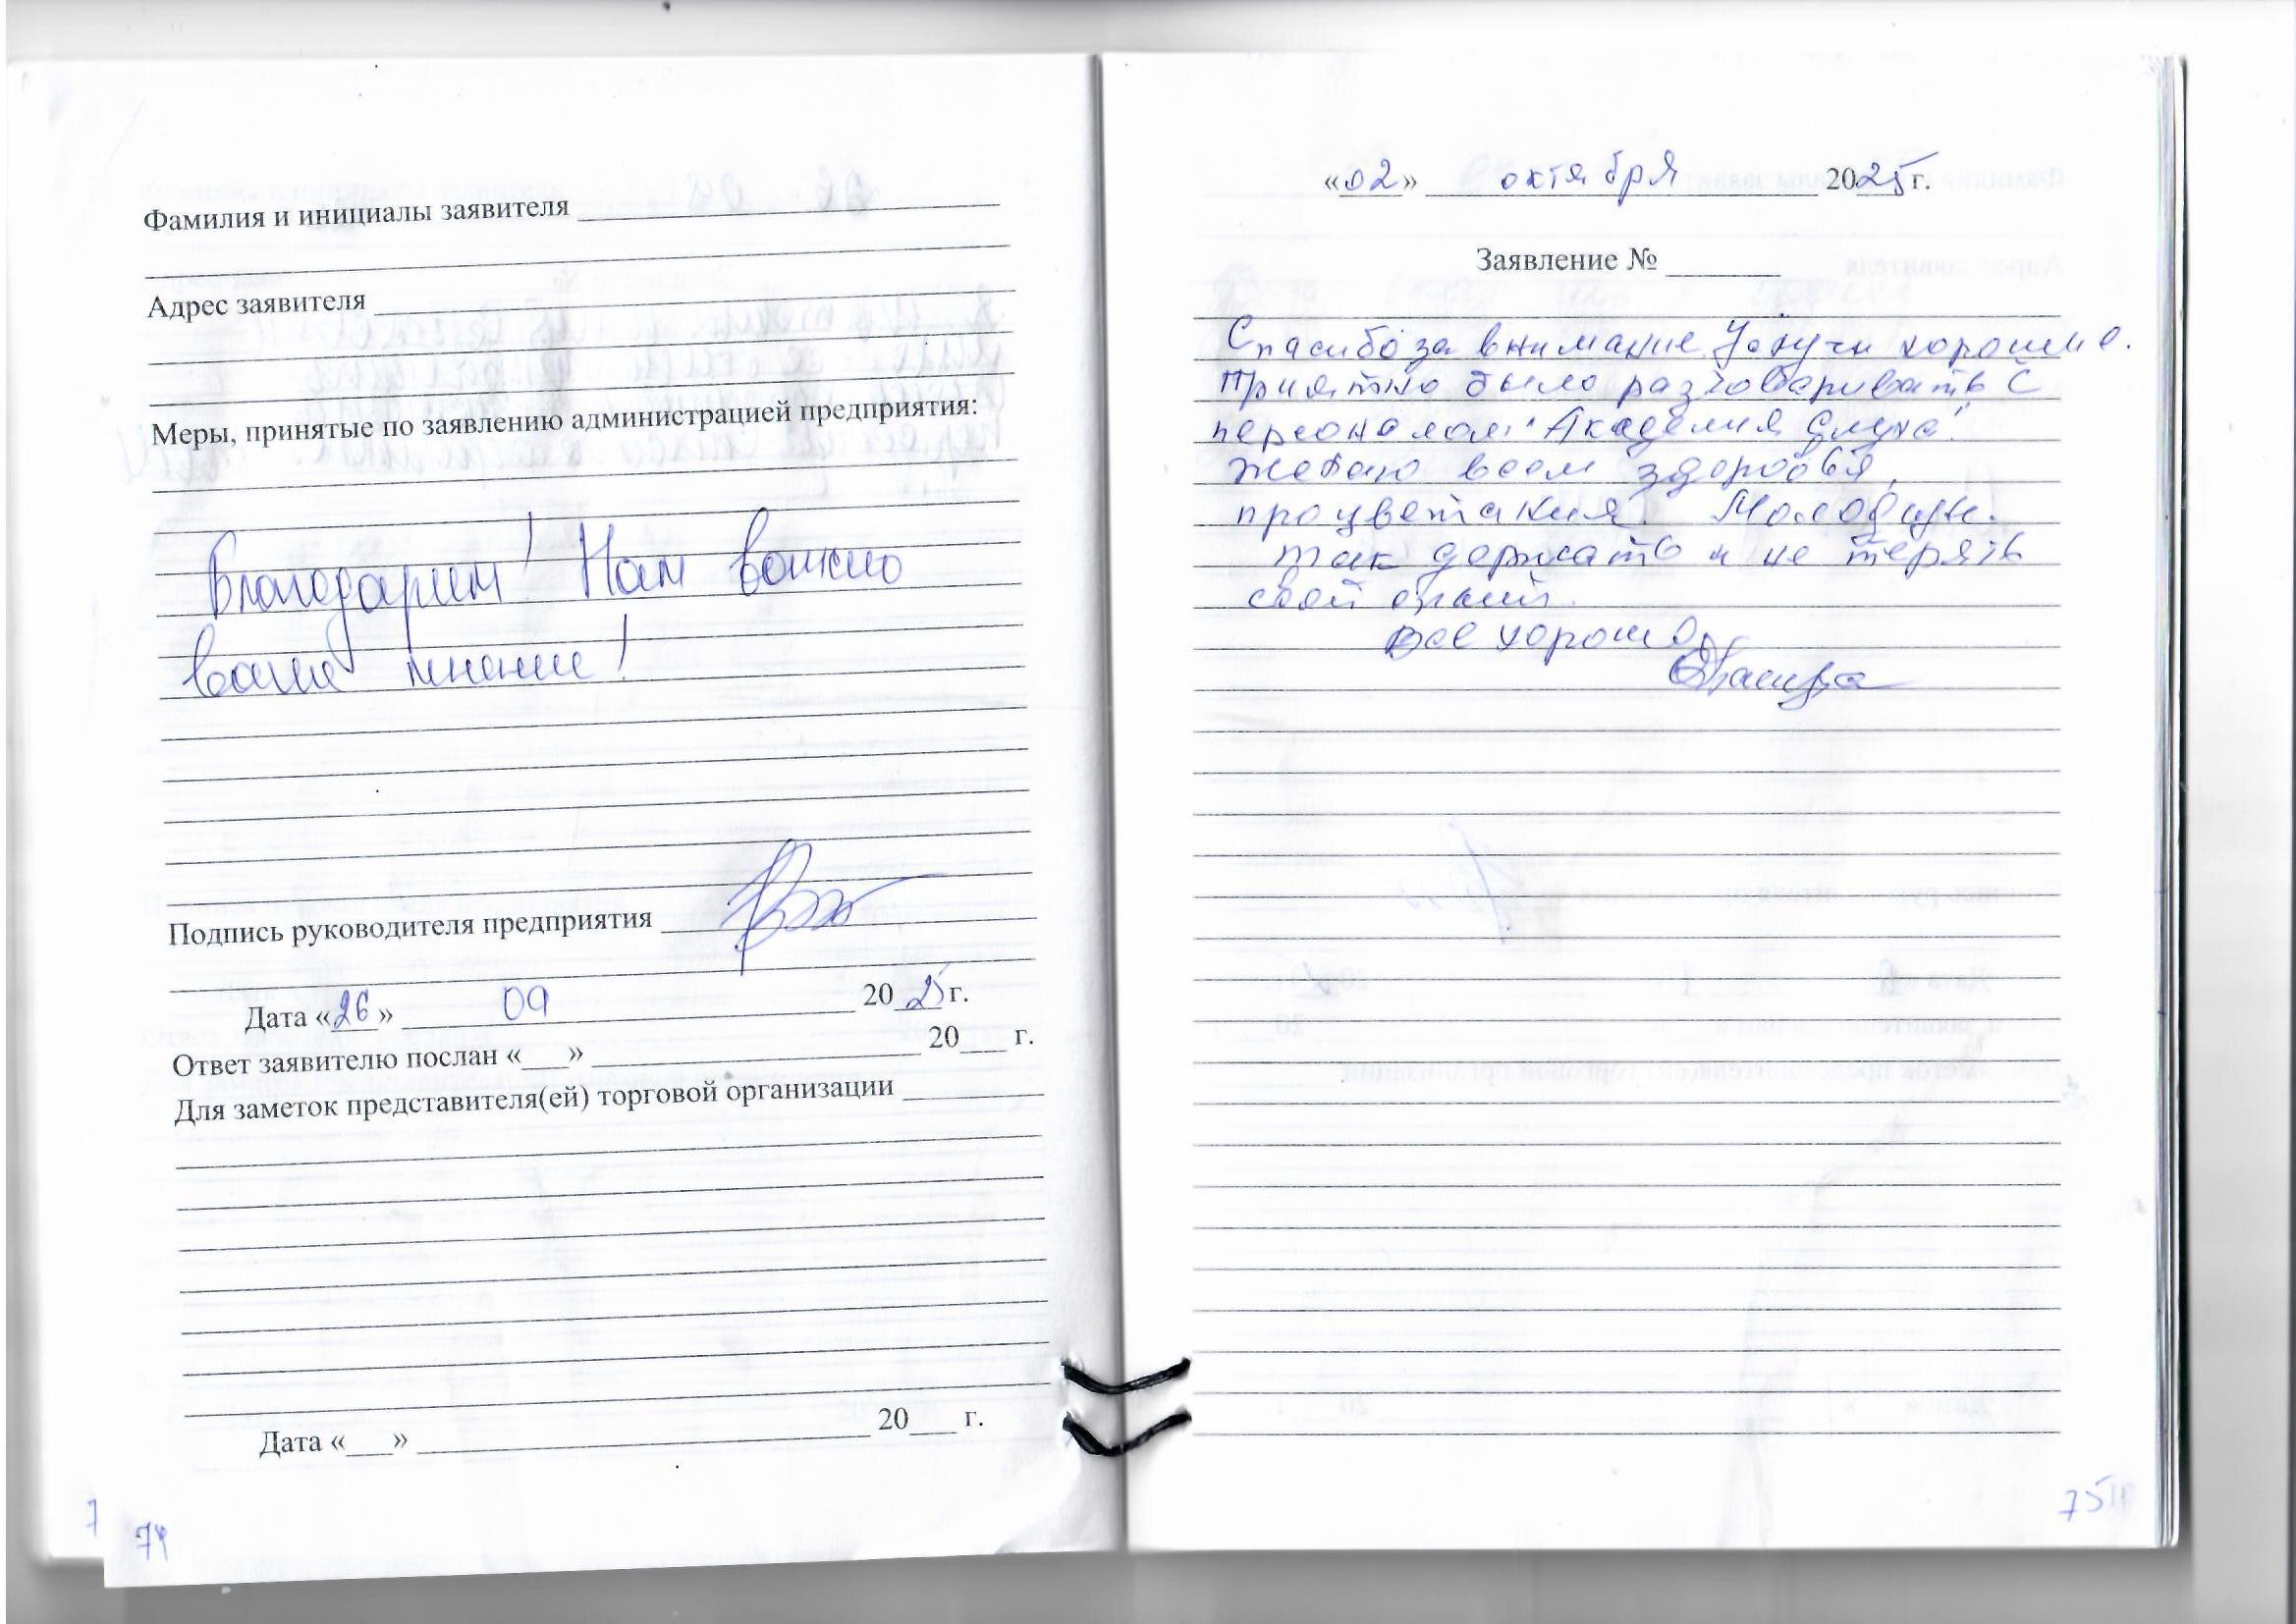 Фамилия и инициалы заявителя
Адрес заявителя
Меры, принятые по заявлению администрацией предприятия:
Благодарим! Нам важно
ваше мнение!
Подпись руководителя предприятия
Дата «26» 09 2025 г.
Ответ заявителю послан «___» 20___ г.
Для заметок представителя(ей) торговой организации
Дата «___» 20___ г.
7
74
«02» октября 2025 г.
Заявление № 
Спасибо за внимание. Услуги хорошие.
Приятно было разговаривать с
персоналом "Академия Слуха".
Желаю всем здоровья,
процветания. Молодцы.
так держать и не терять
свой опыт.
Все хорошо.
75